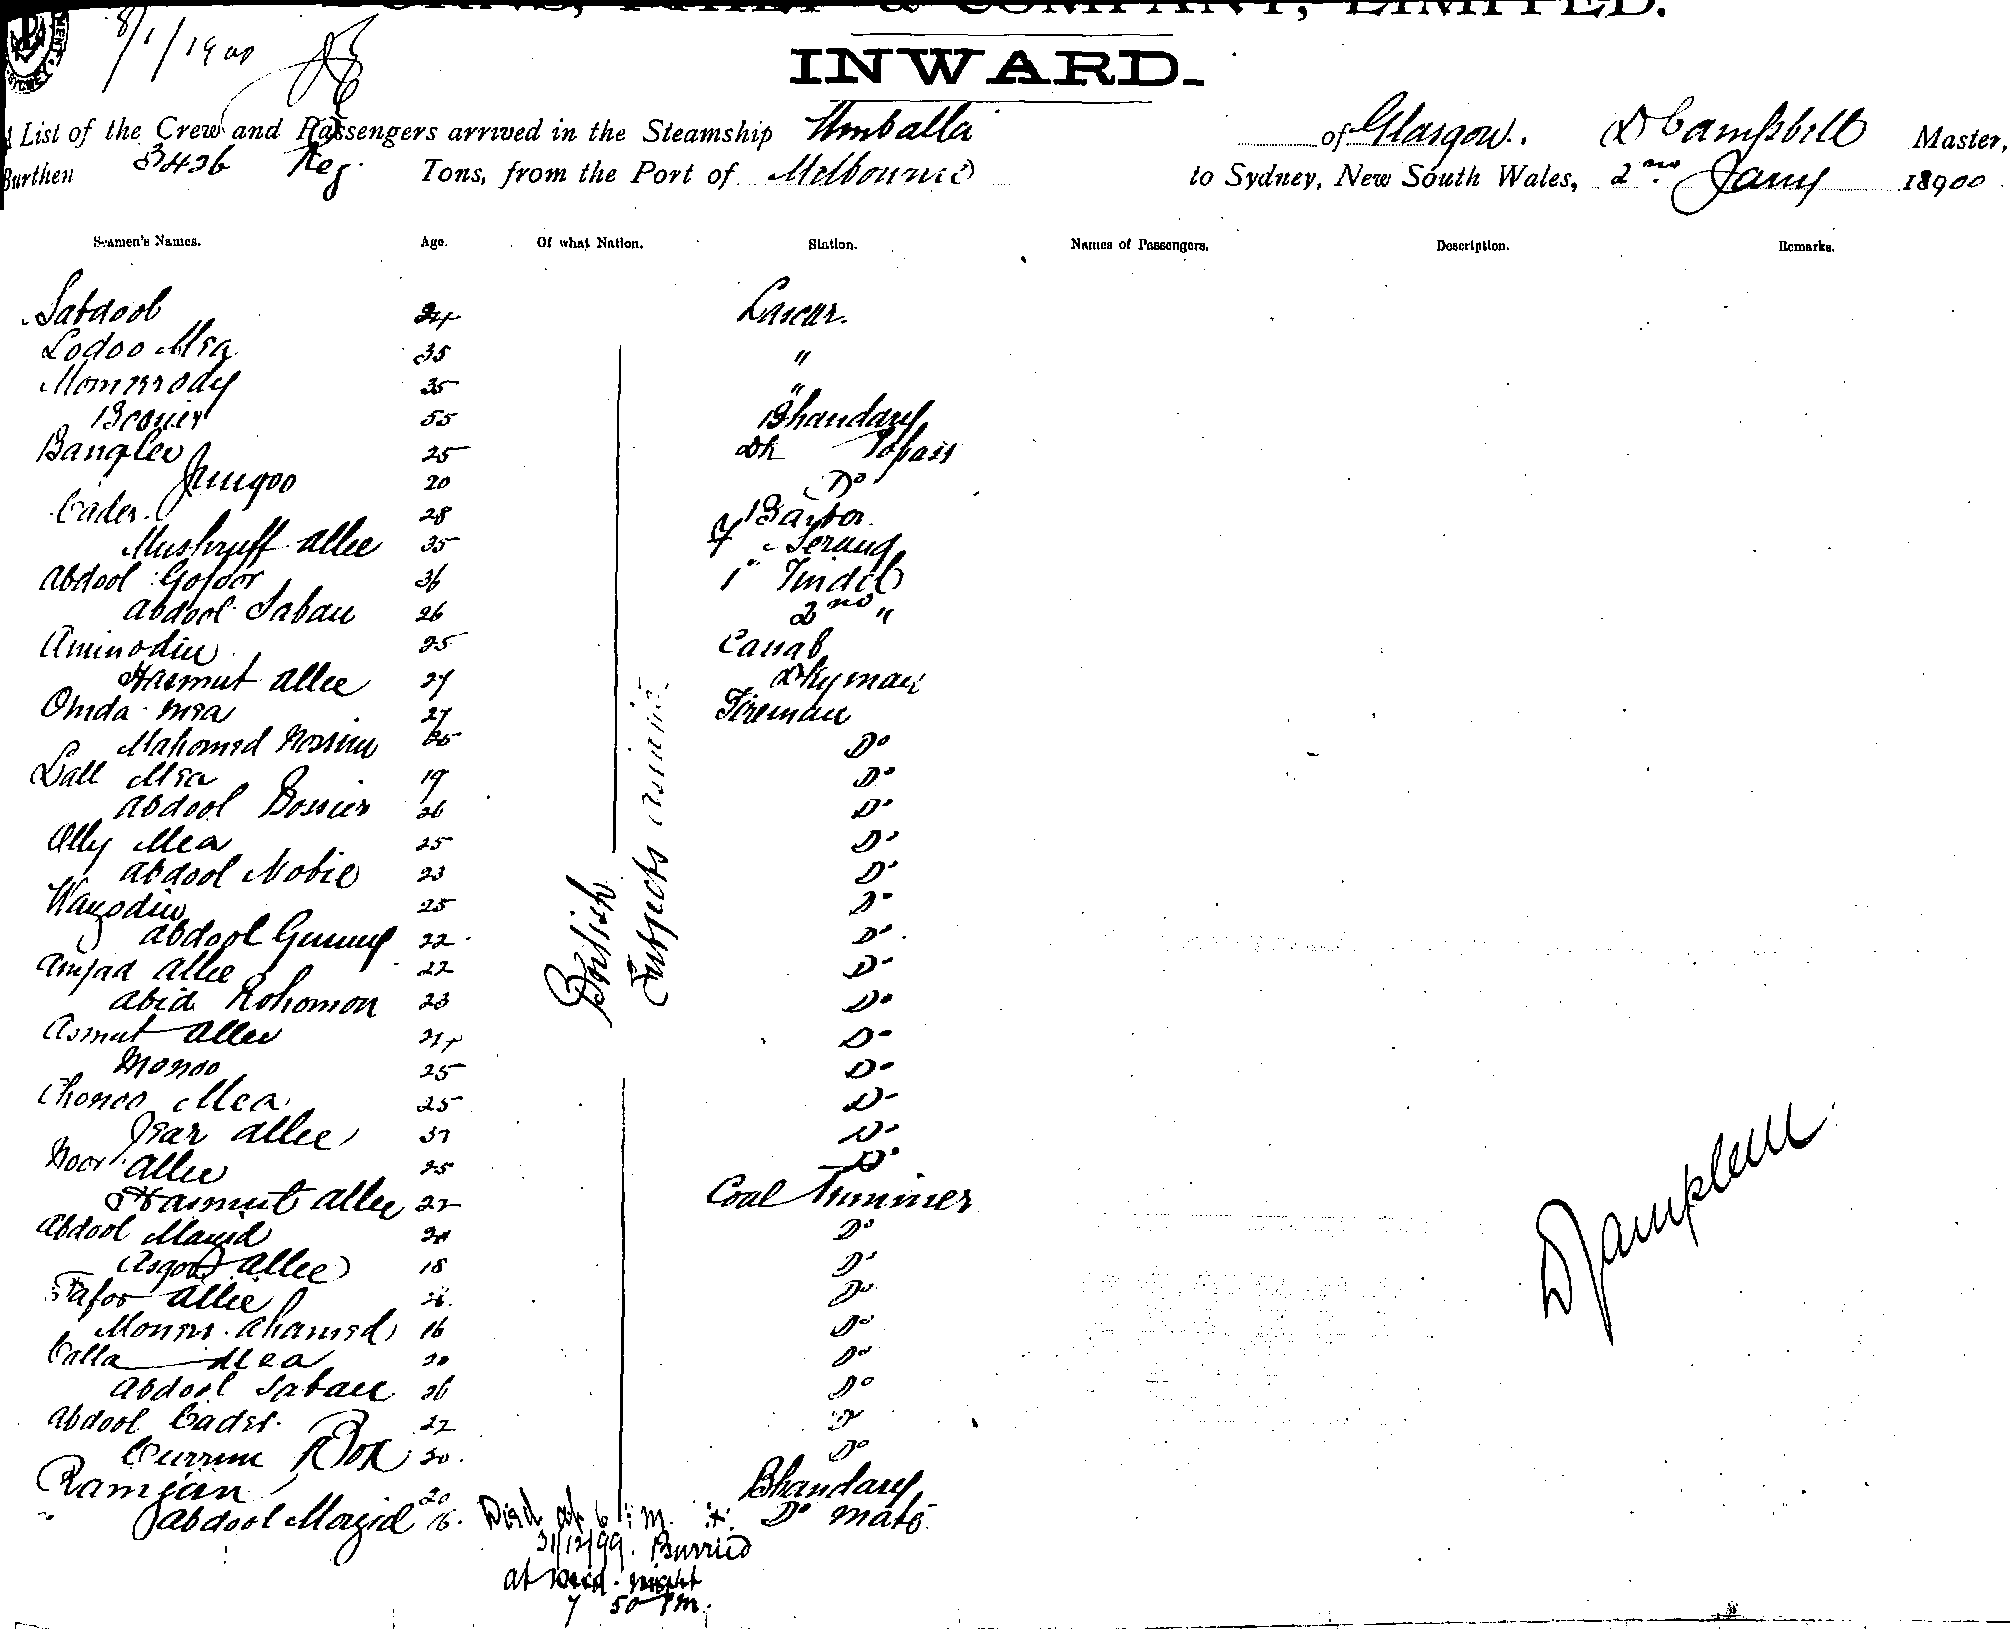 BURNS, PHILP & COMPANY, LIMITED.
8/1/1900
INWARD.
A List of the Crew and Passengers arrived in the Steamship Umballa of Glasgow. D Campbell Master,
Burthen 2426 Reg. Tons, from the Port of Melbourne to Sydney, New South Wales, 2nd Jany 18900
Seamen's Names. Age. Of what Nation. Station. Names of Passengers. Description. Remarks.
Sabdool 24 Lascar.
Lodoo Mea 35 "
Momerrody 35 "
55 Bhandary
Banglee 25 Dk Topass
Jungoo 20 Do
Cader. 28 Barbor.
Mushruff allee 35 Serang
Abdool Gofoor 36 1st Tindel
abdool Saban 26 2nd "
Aminodin 25 Cassab
Hasmut allee 27 Dkyman
Onda mea 27 Fireman
Mahomed Nossim 25 Do
Lall Mea 19 Do
abdool Bossier 26 Do
Olly Mea 25 Do
abdool Nobie 23 Do
Wayzodin 25 Do
abdool Gunny 22 Do
Amjad allee 22 Do
abid Rohomon 23 Do
Asmut allee 24 Do
Monoo 25 Do
Choneo Mea 25 Do
Israr allee 37 Do
Noor allee 25 Do
Hasmut allee 22 Coal Trimmer
Abdool Majid 20 Do
allee 18 Do
allee 26 Do
ahamed 16 Do
Calla Mea 20 Do
abdool Saban 26 Do
Abdool Cader. 22 Do
Currim Box 30. Do
Ramjan 20 Bhandary
abdool Mazid 16. Do mate
British
Subjects
Died at 6 M.
31/12/99. Burried
at night
7 50 PM.
D Campbell